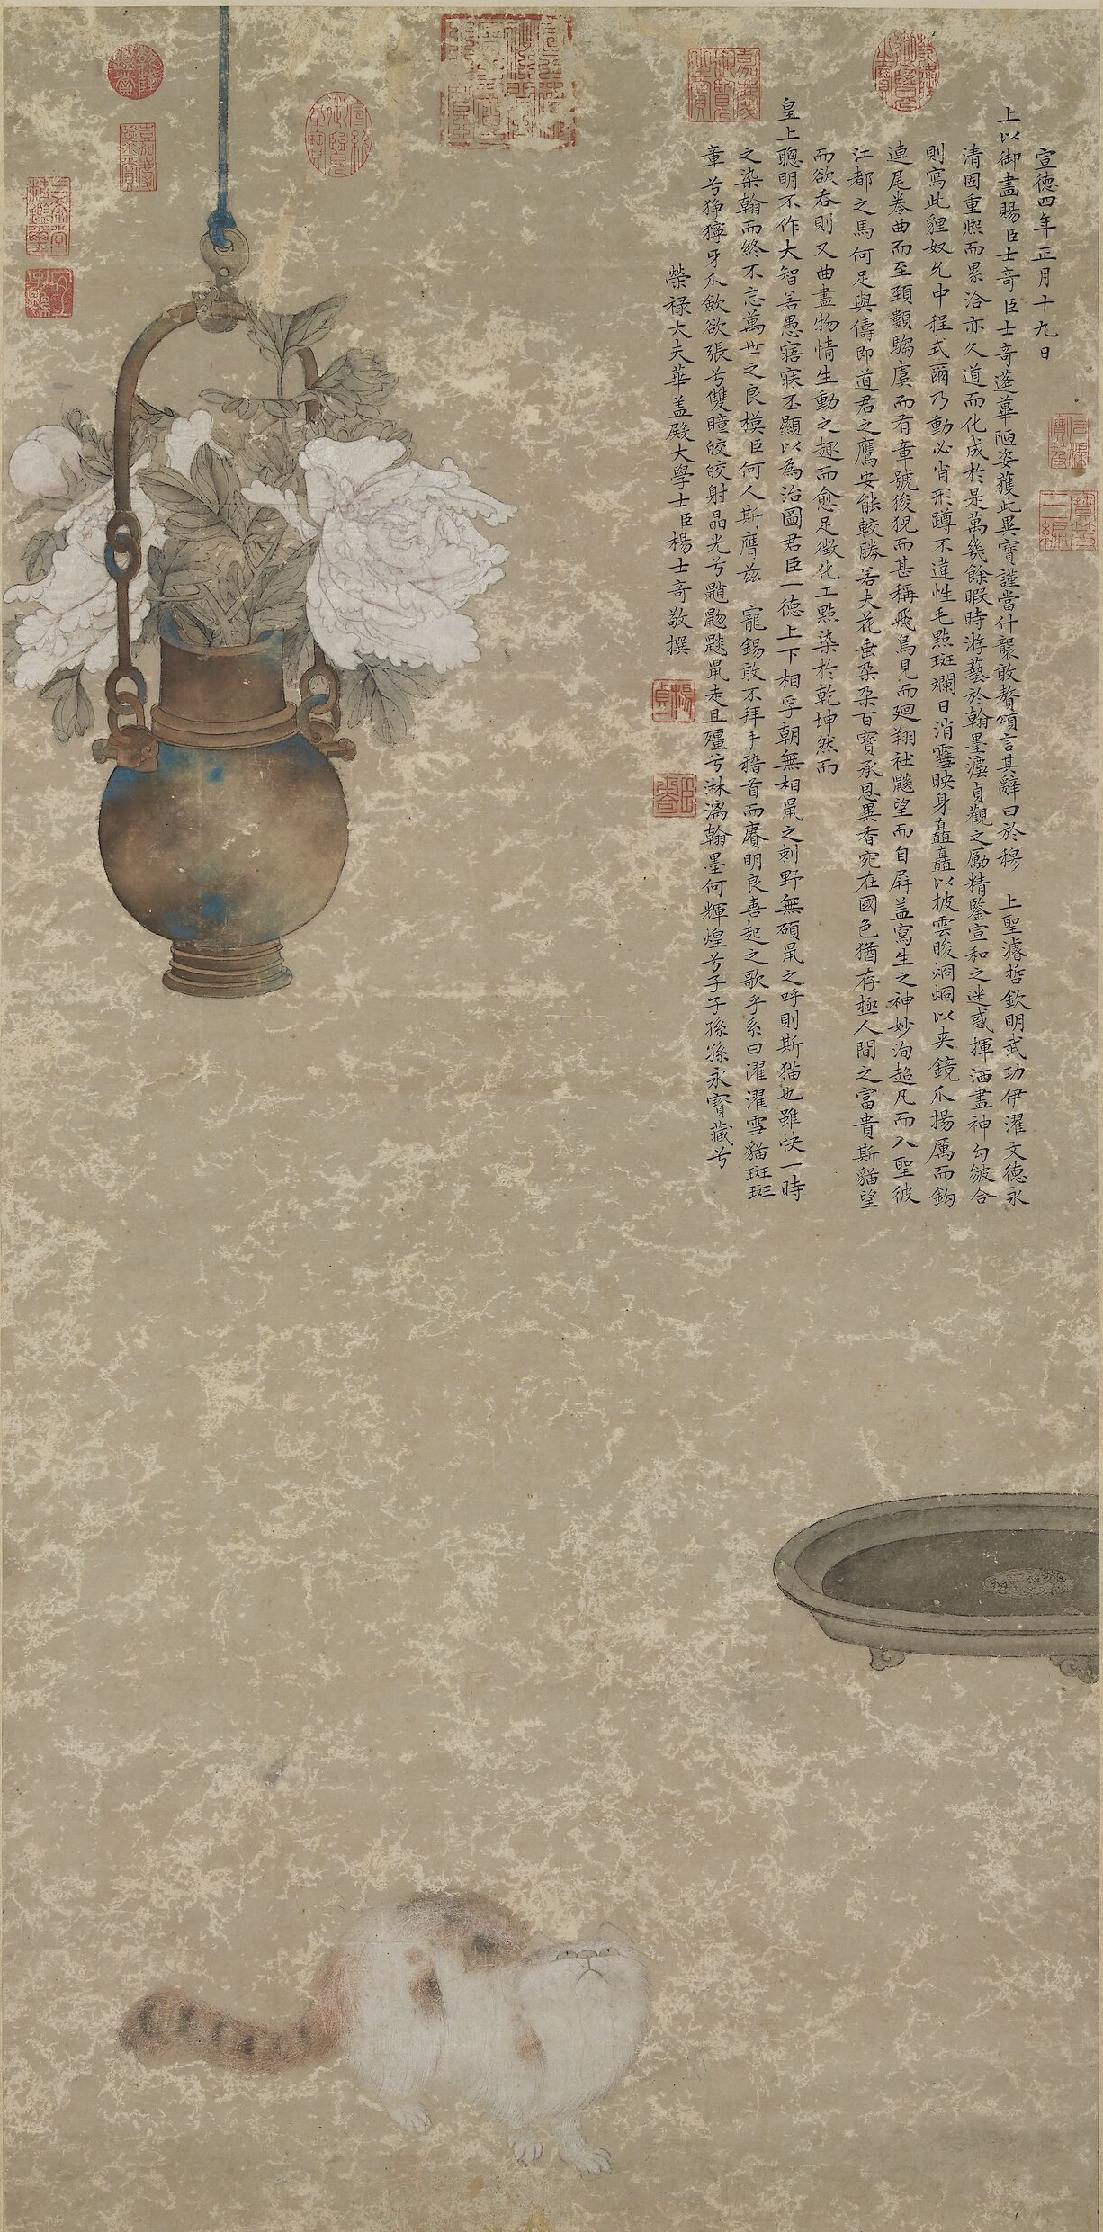 宣德四年正月十九日
上以御畫賜臣士奇臣士奇蓬蓽陋姿獲此異寶謹當什襲敢賡頌言其辭曰於穆　上聖濬哲欽明武功伊濯文德永
清固重熙而累洽亦久道而化成於是萬幾餘暇時游藝於翰墨瀍貞觀之勵精鑒宣和之迷惑揮洒畫神勾皴合
則寫此貍奴允中程式爾乃動必肖形蹲不違性毛點斑斕日消雪映身矗矗以披雲睃烱烱以夾鏡爪揚厲而鉤
連尾卷曲而至頸顰騶虞而有章號狻猊而甚稱飛鳥見而廻翔社鼷望而自屏蓋寫生之神妙洵超凡而入聖彼
江都之馬何足與儔即道君之鷹安能較勝若夫花垂朶朶百寶承恩異香宛在國色猶存極人間之富貴斯貓望
而欲吞則又曲盡物情生動之趣而愈足徵化工點染於乾坤然而
皇上聰明不作大智若愚寤寐丕顯以為治圖君臣一德上下相孚朝無相鼠之刺野無碩鼠之呼則斯猫也雖快一時
之染翰而終不忘萬世之良模臣何人斯膺茲　寵錫敢不拜手稽首而賡明良喜起之歌乎系曰濯濯雪貓斑斑
章兮猙獰牙爪斂欲張兮雙瞳皎皎射晶光兮走且殭兮淋漓翰墨何輝煌兮子子孫孫永寶藏兮
榮祿大夫華蓋殿大學士臣楊士奇敬撰